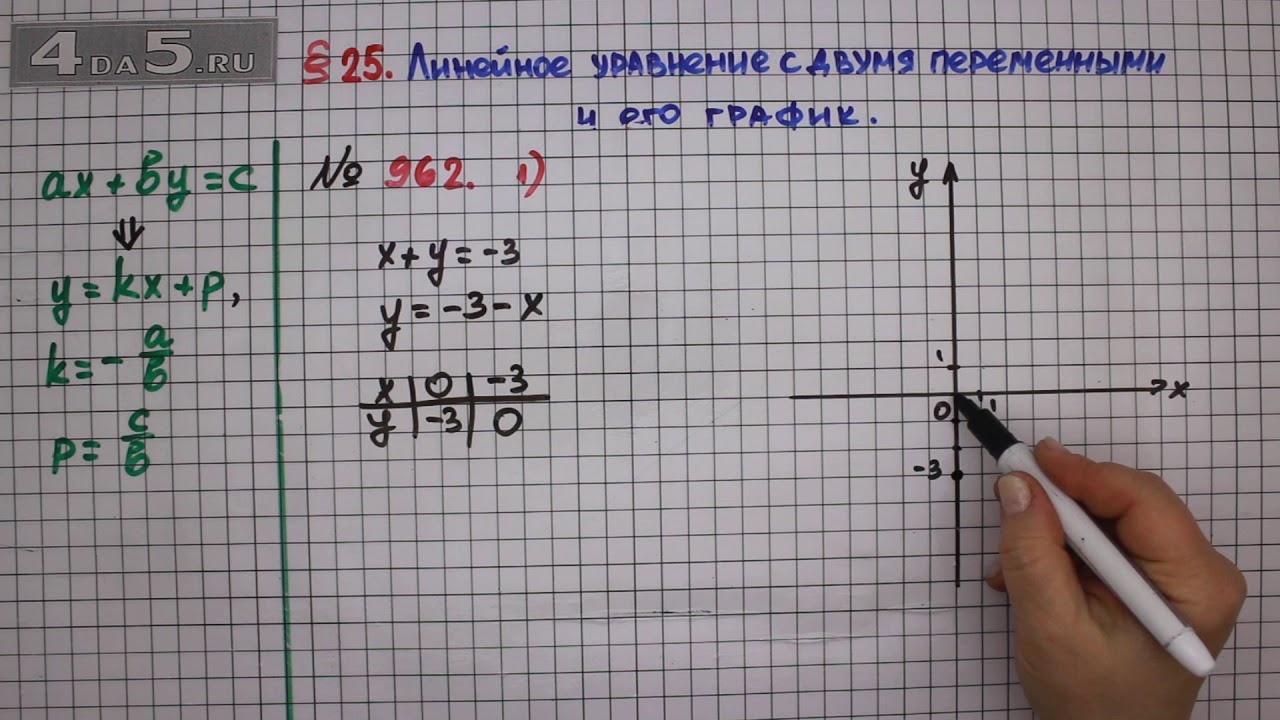 4DA5.RU
§ 25. Линейное уравнение с двумя переменными
и его график.
ax + by = c
⇓
y = kx + p,
k = - a/b
p = c/b
№ 962. 1)
x + y = -3
y = -3 - x
x | 0 | -3
y | -3 | 0
y
1
x
0 1
-3